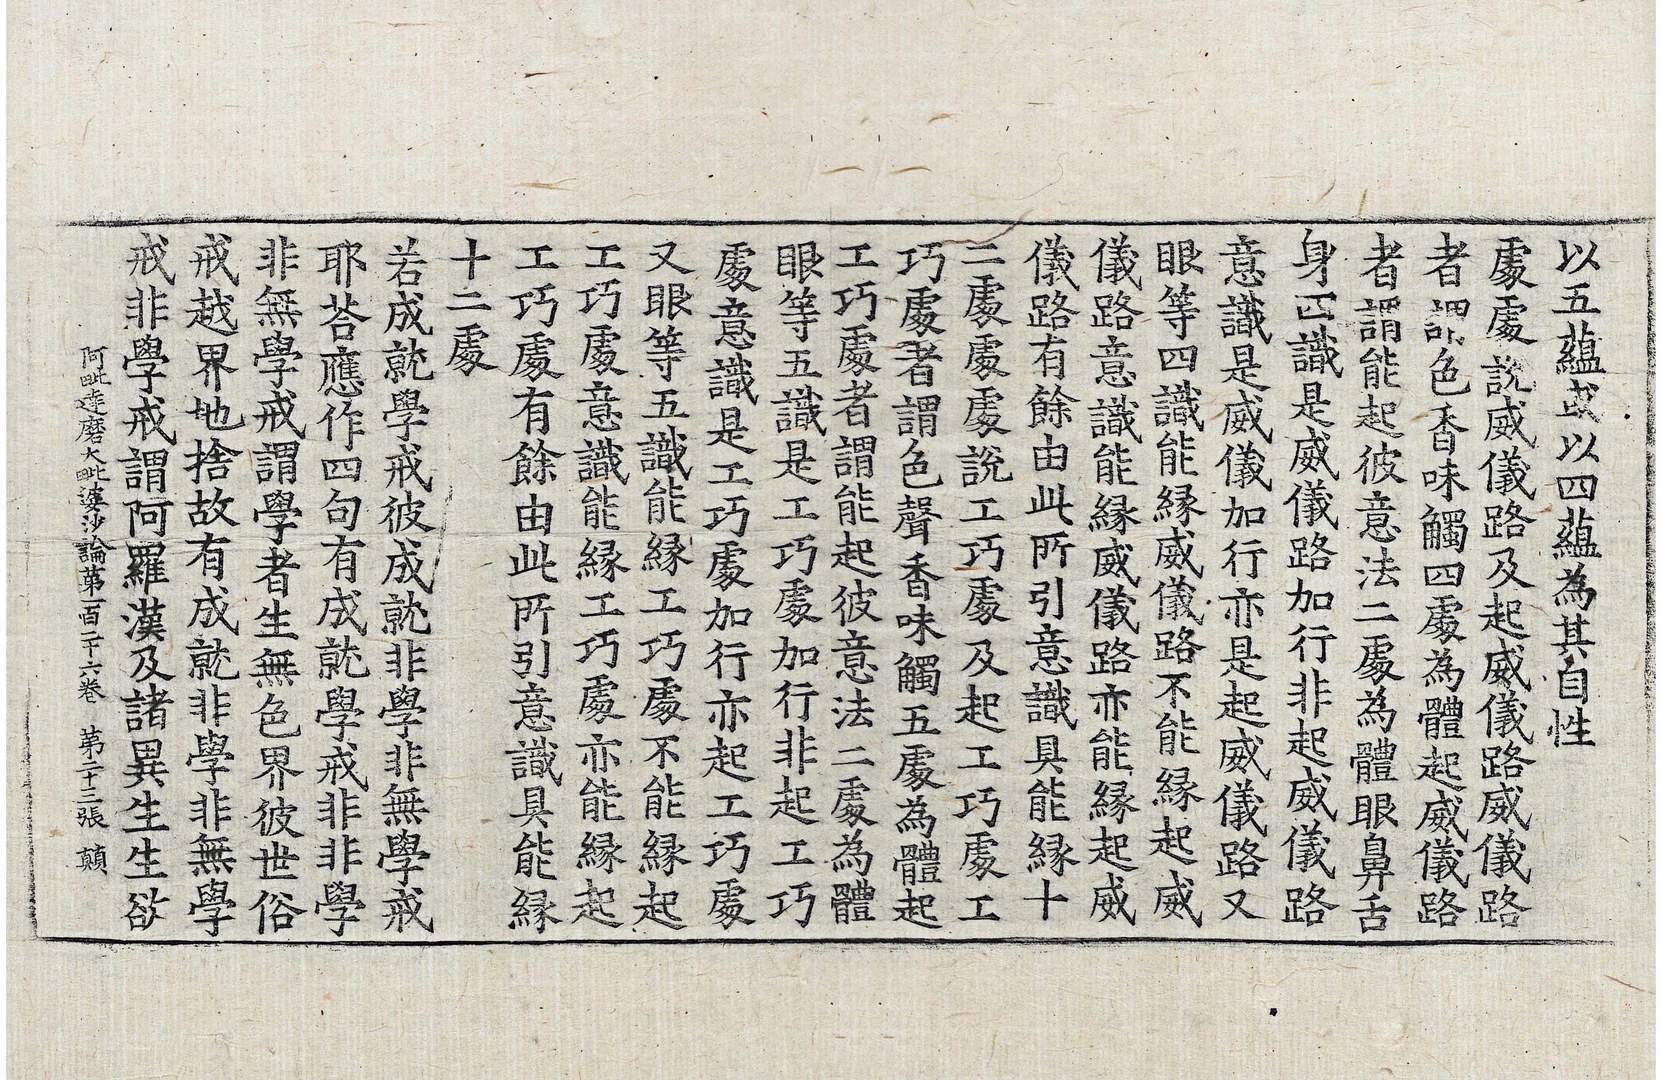 以五蘊或以四蘊為其自性
處處說威儀路及起威儀路威儀路
者謂色香味觸四處為體起威儀路
者謂能起彼意法二處為體眼鼻舌
身四識是威儀路加行非起威儀路
意識是威儀加行亦是起威儀路又
眼等四識能縁威儀路不能縁起威
儀路意識能縁威儀路亦能縁起威
儀路有餘由此所引意識具能縁十
二處處處說工巧處及起工巧處工
巧處者謂色聲香味觸五處為體起
工巧處者謂能起彼意法二處為體
眼等五識是工巧處加行非起工巧
處意識是工巧處加行亦起工巧處
又眼等五識能縁工巧處不能縁起
工巧處意識能縁工巧處亦能縁起
工巧處有餘由此所引意識具能縁
十二處
若成就學戒彼成就非學非無學戒
耶荅應作四句有成就學戒非非學
非無學戒謂學者生無色界彼世俗
戒越界地捨故有成就非學非無學
戒非學戒謂阿羅漢及諸異生生欲
阿毗達磨大毗婆沙論苐一百二十六卷 第二十三張 顛